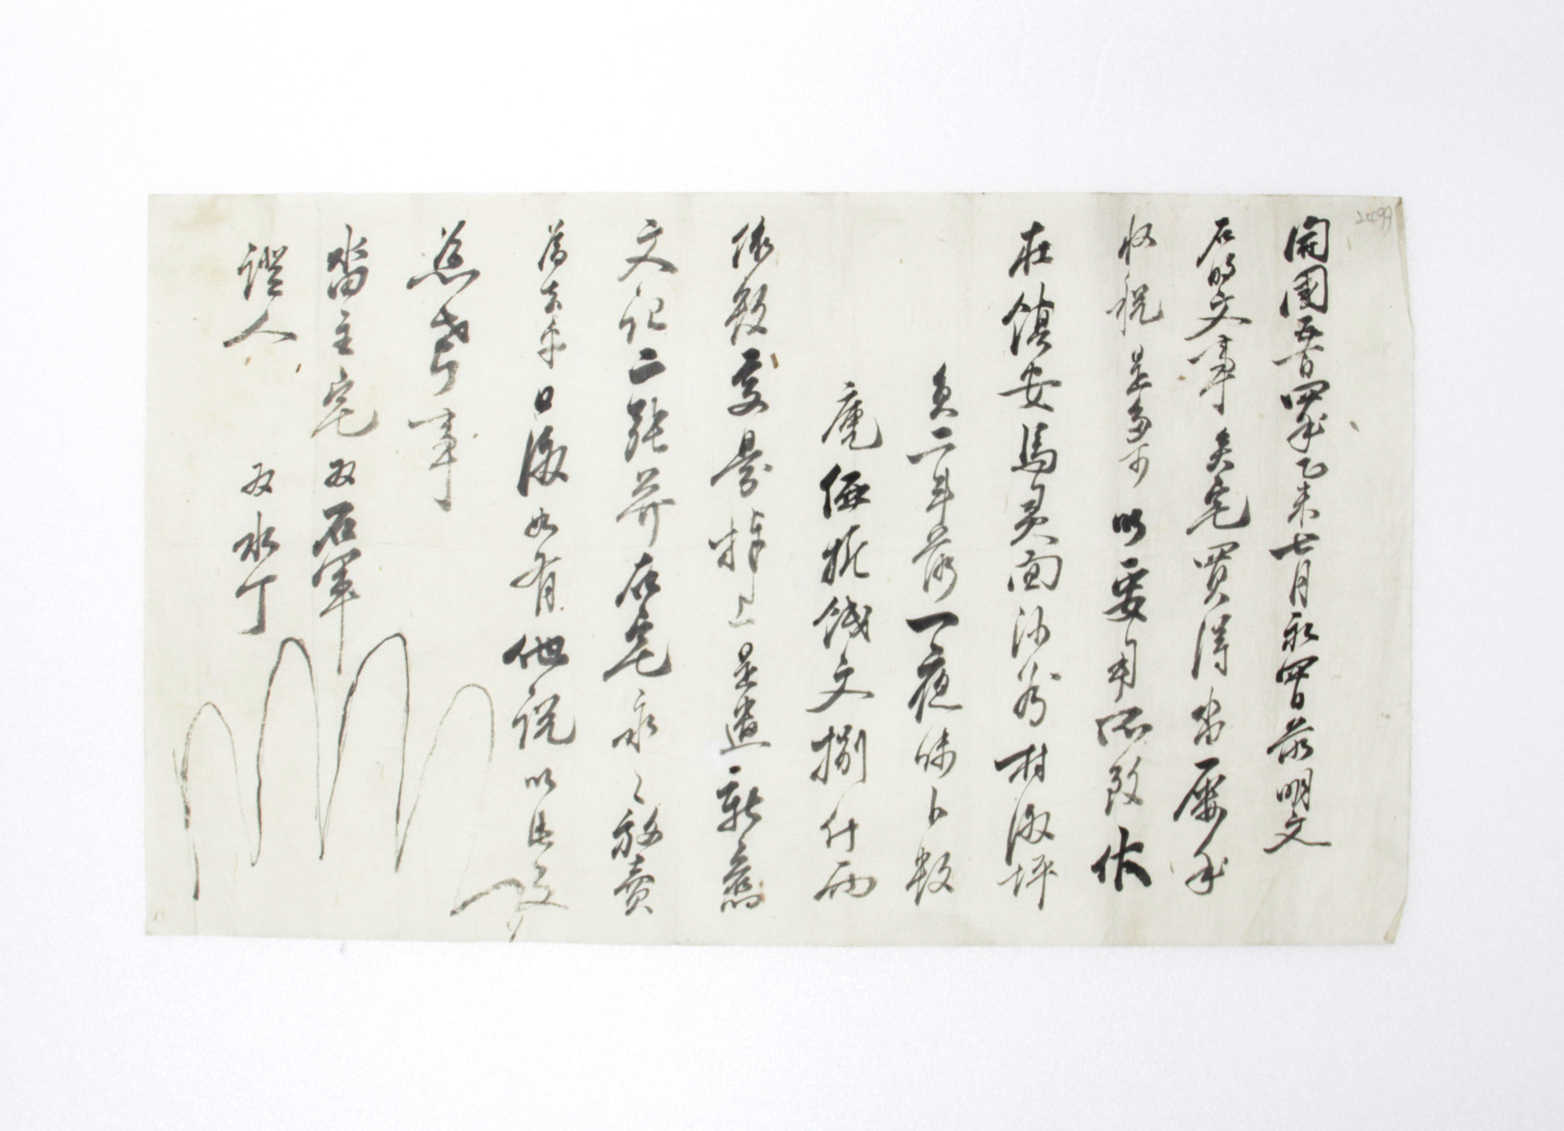 2499
開國五百四年乙未七月初四日前明文
右明文事矣宅買得畓屢年
收稅是多可以要用所致伏
在鎭安馬灵面沙谷村後坪
員二斗落一夜味卜數
庫伍折錢文捌什兩
依數交易捧上是遣新舊
文記二張幷右宅永〻放賣
爲去乎日後如有他說以此文
憑考事
畓主宅奴石軍
證人 奴水丁